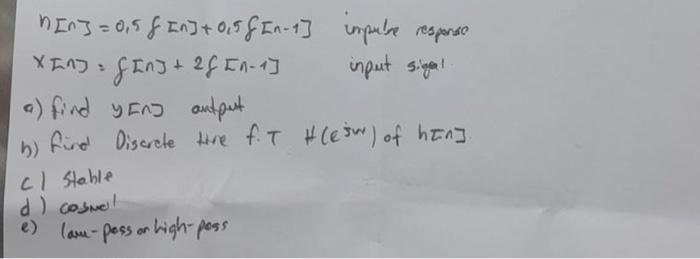 h[n] = 0,5 δ[n] + 0,5 δ[n-1] impulse response
x[n] = δ[n] + 2δ[n-1] input signal
a) find y[n] output
b) find Discrete time f.T H(e^jw) of h[n].
c) Stable
d) casual
e) low-pass or high-pass